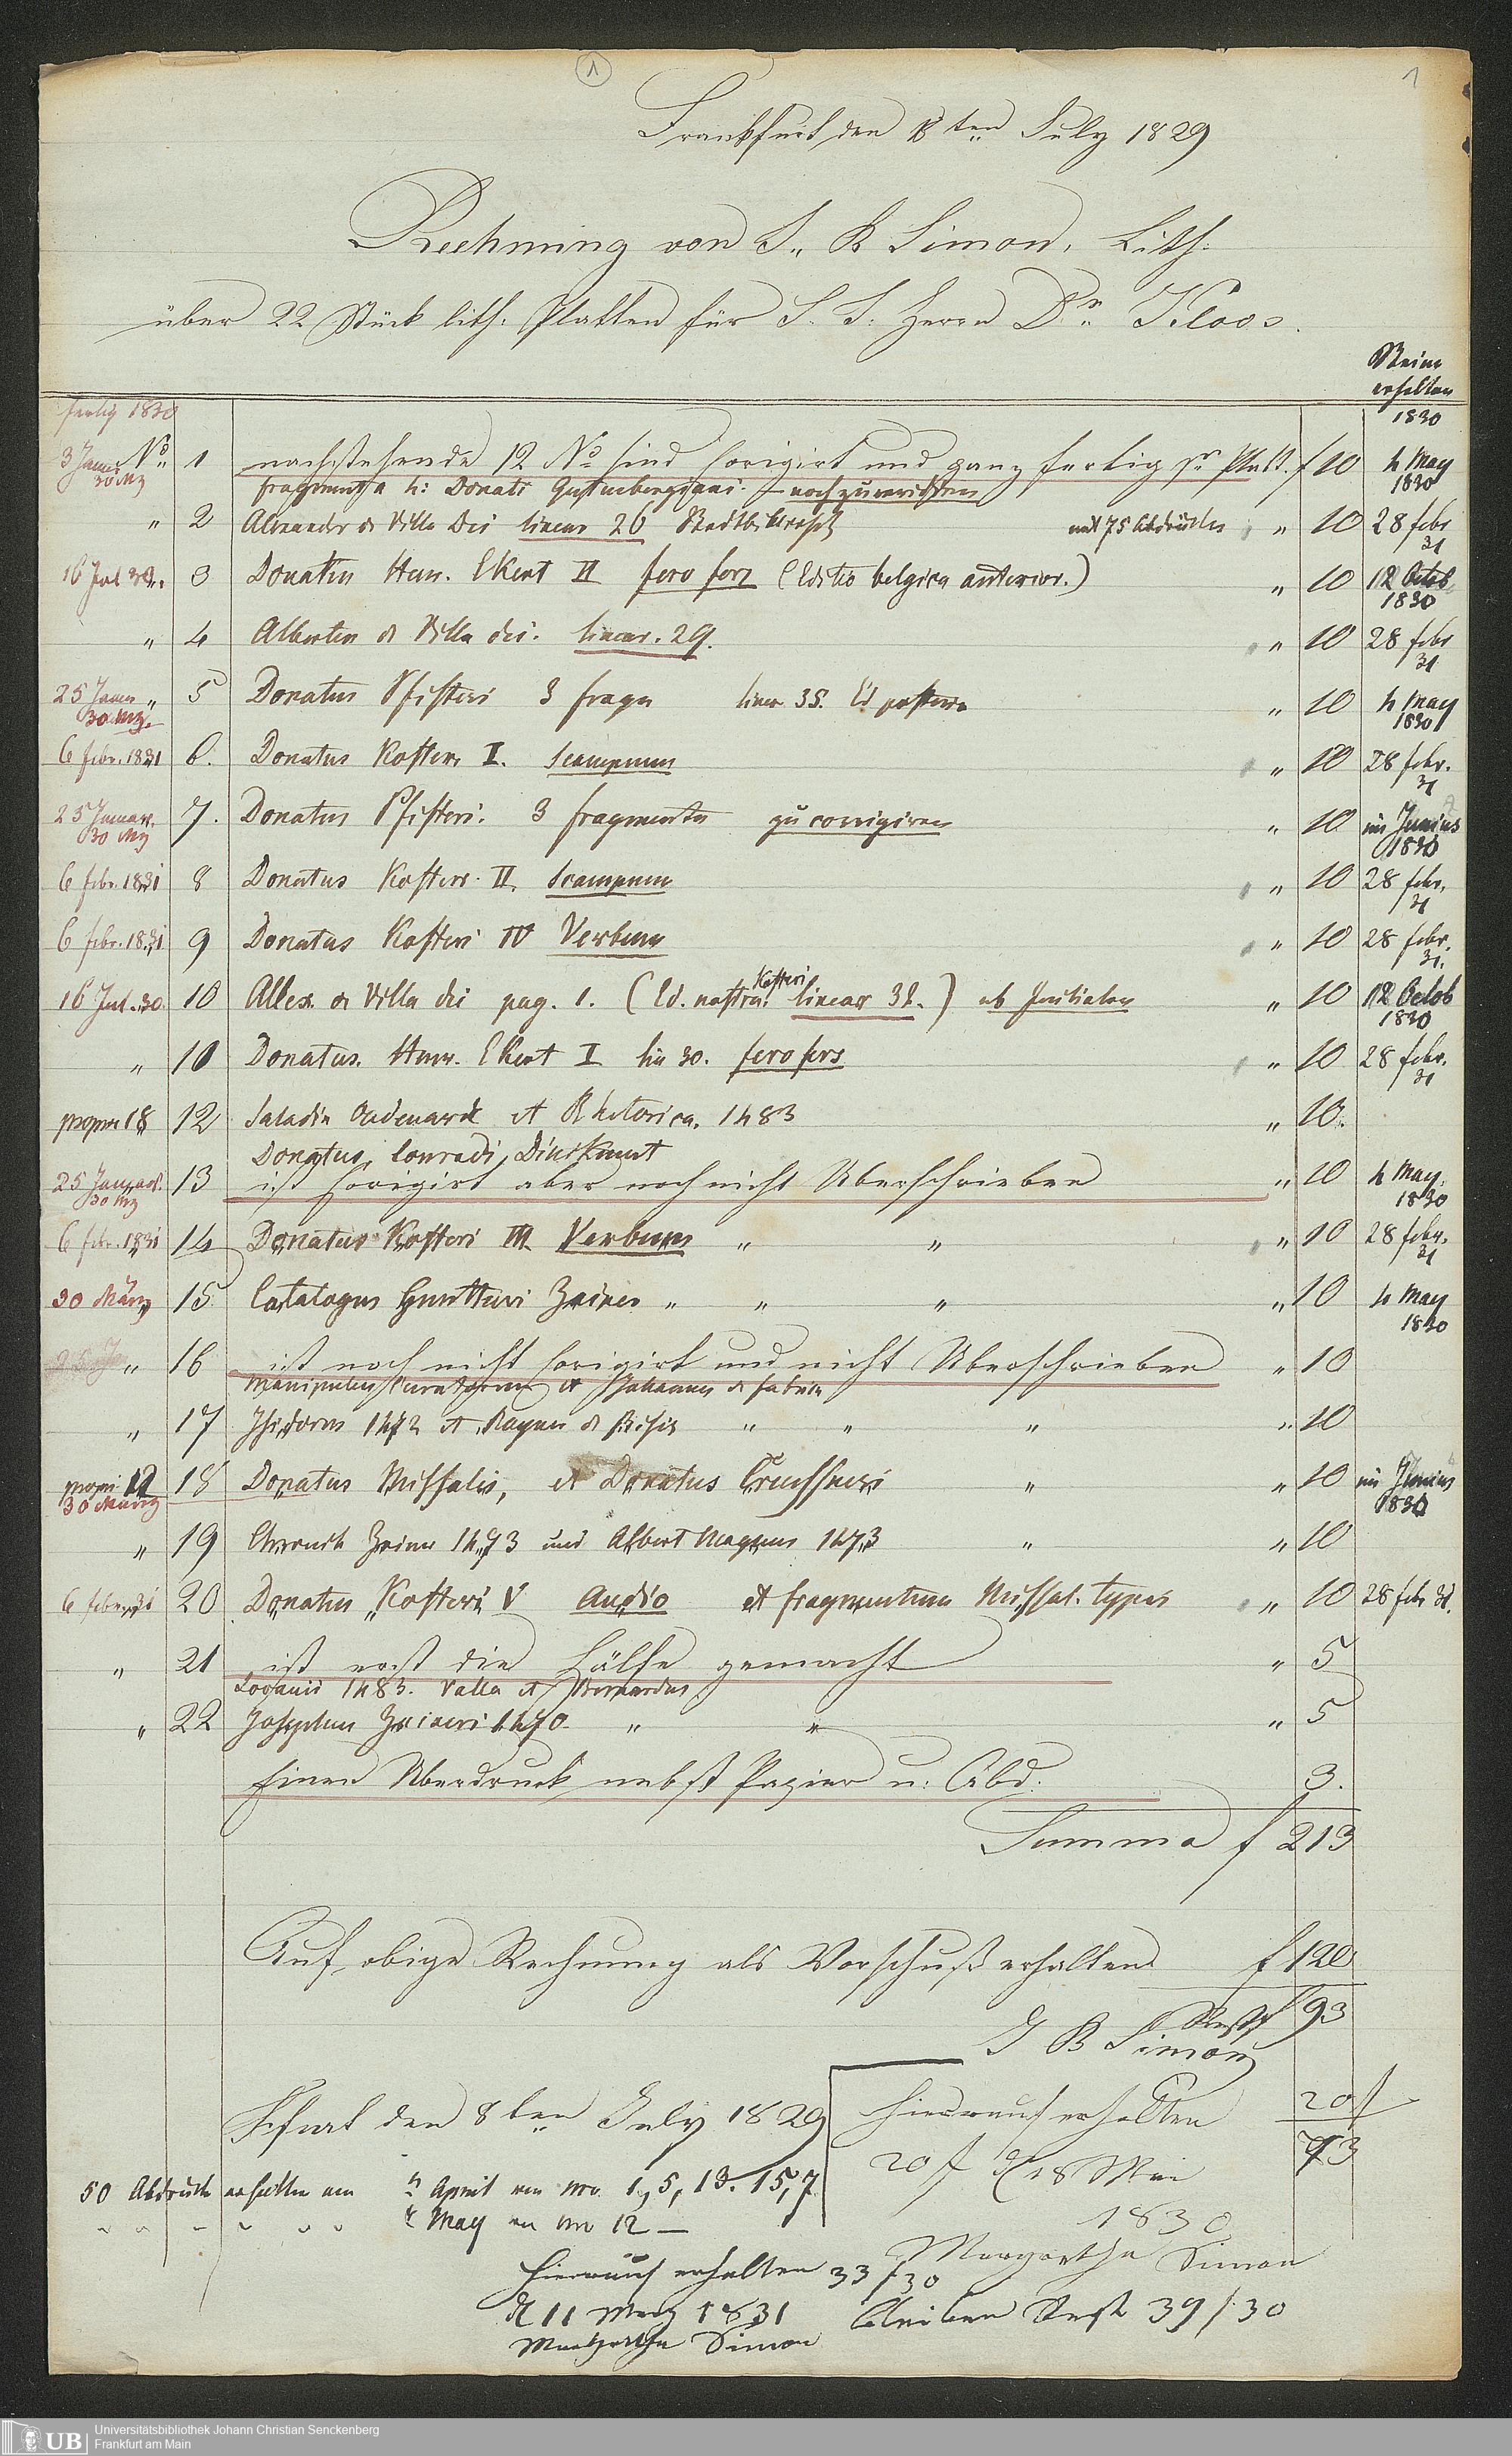 1
1
Frankfurt den 8ten July 1829
Rechnung von J. B Simon, Lith:
über 22 Stück lith: Platten für S. T: Herrn Dr. Kloos.
Steine
erhalten
fertig 1830
1830
3 Januar No. 1 nachstehende 12 No sind Corigirt und ganz fertig pr Platt. f 10 4 May
30 Mz fragmenta 4: Donati Guttenbergiani. noch zu 1830
" 2 Alexander de Villa Dei linear 26 mit 75 Abdrücken " 10 28 febr
31
16 Jul 30. 3 Donatus Henr. Ekert II fero fers (Editio belgica anterior.) " 10 12 Octob
1830
" 4 de Villa dei. linear. 29. " 10 28 febr
31
25 Januar " 5 Donatus Pfisteri 3 fragm linear 35. Ed " 10 4 May
30 Mz. 1830
6 febr. 1831 6. Donatus Kosteri I. Scampnum " 10 28 febr.
31
25 Januar. 7. Donatus Pfisteri. 3 fragmenta zu corrigiren " 10 im Junius
30 Mz 1830
6 febr. 1831 8 Donatus Kosteri II. Scampnum " 10 28 febr.
31
6 febr. 1831 9 Donatus Kosteri IV Verbum " 10 28 febr.
31.
Kosteri
16 Jul. 30. 10 Allex. de Villa dei pag. 1. (Ed. nostra. linear 32.) " 10 12 Octob
1830
" 11 Donatus. Henr. Ekert I lin 30. fero fers " 10 28 febr.
31
18 12 Saladin et Rhetorica. 1483 " 10.
Donatus, Conradi Dinkmut
25 Januar. 13 ist Corigirt aber noch nicht Überschrieben " 10 4 May.
30 Mz 1830
6 febr. 1831 14 Donatus Kosteri III. Verbum " " " 10 28 febr.
31
30 März 15. Catalogus Guntheri Zainer " " " " 10 4 May
1830
" 16 ist noch nicht Corigirt und nicht Überschrieben " 10
Manipulus Curatorum et Johannes de
" 17 Isidorus 1472 et " " " " 10
12 18 Donatus Missalis, et Donatus " " 10 im Junius
30 März 1830
" 19 Chronik Zainer 1473 und Albert Magnus 1473 " " 10
6 febr. 31 20 Donatus Kosteri V Audio et fragmentum Missal. typis " 10 28 febr 31.
" 21 ist erst die Hälfte gemacht " 5
Lovanii 1483. Valla et Bernardus
" 22 Josephus Zaineri 1470. " " " 5
Einen Überdruck nebst Papier u: Abd: 3.
Summa f 213
Auf obige Rechnung als Vorschuß erhalten f 120
Rest f 93
J B Simon
Ffurt den 8ten July 1829
hierauf erhalten 20 f
73
20 f d 18 Mai
1830
Margaretha Simon
50 Abdrücke erhalten am 4 April von nro. 1, 5, 13. 15, 7.
" " " " " " 4 May von nro 12 —
hierauf erhalten 33 f 30
d 11 Merz 1831 bleiben Rest 39 f 30
Margaretha Simon
UB
Universitätsbibliothek Johann Christian Senckenberg
Frankfurt am Main